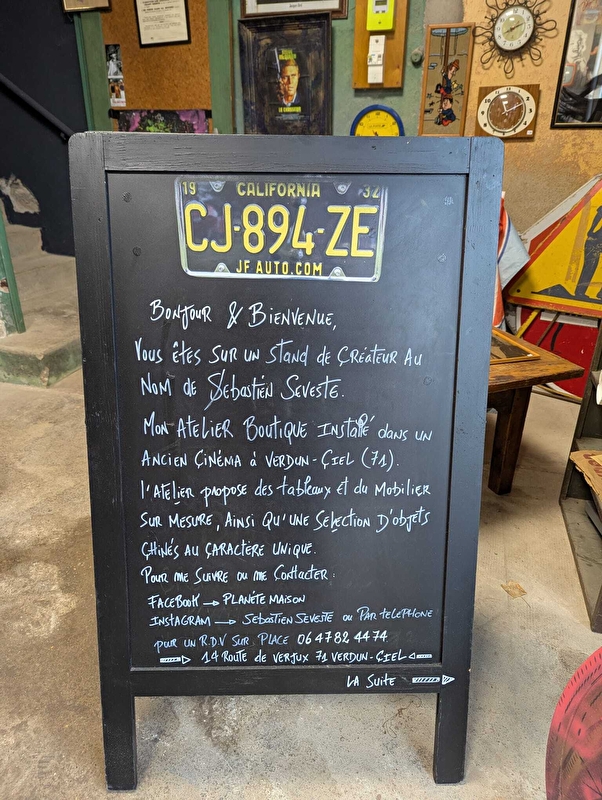 19 CALIFORNIA 32
CJ-894-ZE
JF AUTO.COM
Bonjour & Bienvenue,
Vous êtes sur un stand de Créateur au
nom de Sébastien Seveste.
Mon Atelier Boutique Installé dans un
Ancien Cinéma à Verdun-Ciel (71).
l'Atelier propose des tableaux et du Mobilier
sur mesure, Ainsi qu'une Selection d'objets
chinés au caractère unique.
Pour me suivre ou me contacter :
Facebook → Planéte Maison
Instagram → Sebastien Seveste ou Par telephone
pour un R.D.V sur place 06 47 82 44 74
14 Route de Verjux 71 Verdun-Ciel
La Suite